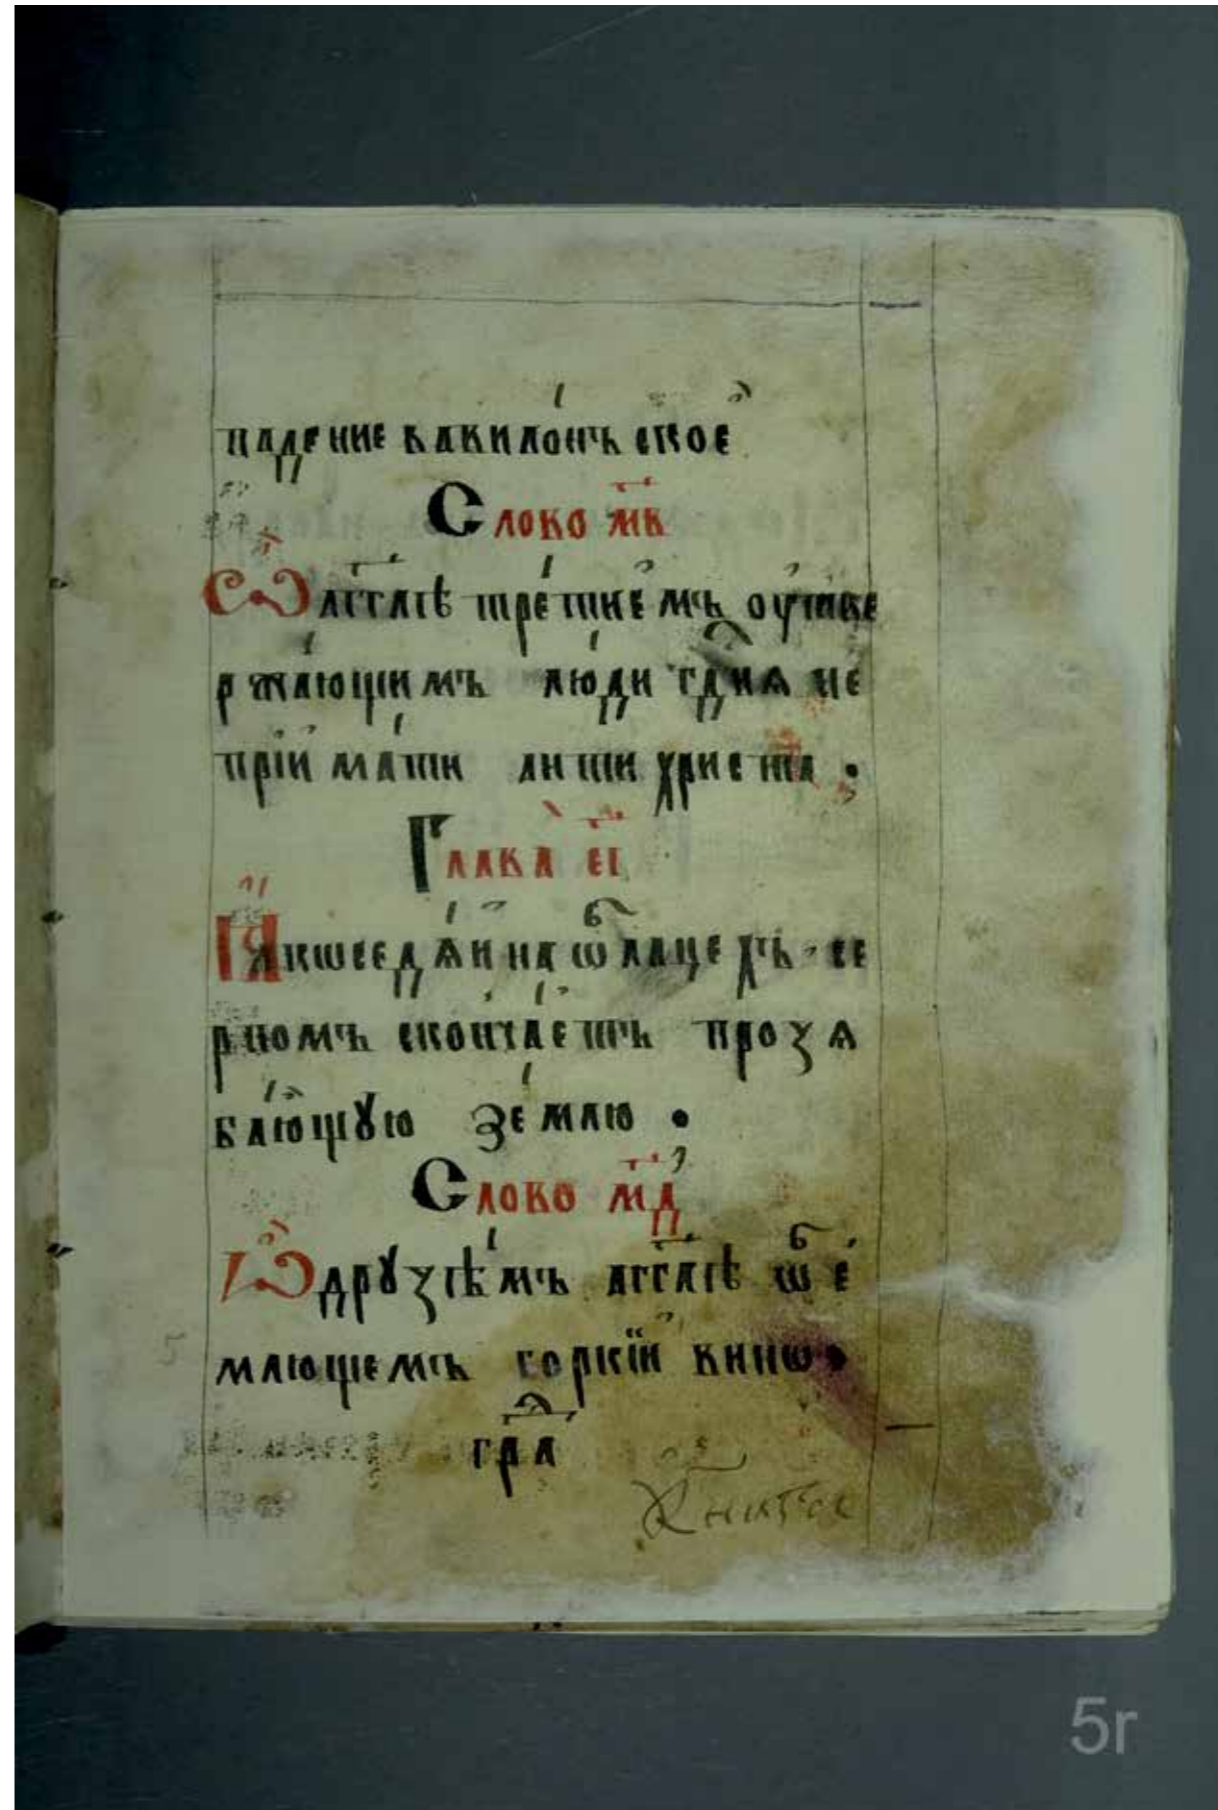 падение вавило́нъское
Слово м҃в
Ѡ аг҃глѣ тре́тиемъ оу҆тве
ржа́ющимъ лю́ди гд҃ния не
прїима́ти антихриста .
Глава̀ е҃і
Ꙗкѡ седѧ́й на ѡ҆блацехъ се
рпомъ сконча́етъ прозѧ
ба́ющꙋю зе́млю .
Слово м҃д
Ѡ дрꙋзѣ́мъ аг҃глѣ ѡб̾е́
млющемъ горкїй вино .
гр҃а
5r